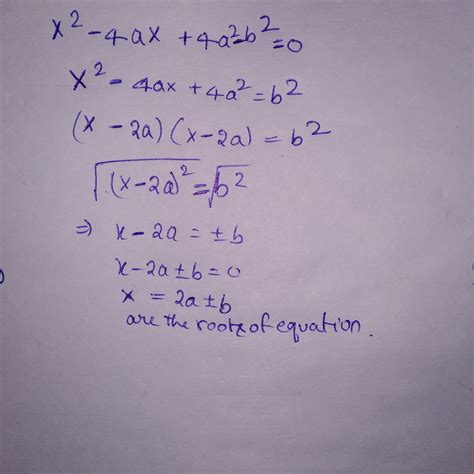 x² - 4ax + 4a²-b² = 0
x² - 4ax + 4a² = b²
(x - 2a) (x - 2a) = b²
√(x-2a)² = √b²
⇒ x - 2a = ± b
x - 2a ± b = 0
x = 2a ± b
are the roots of equation.